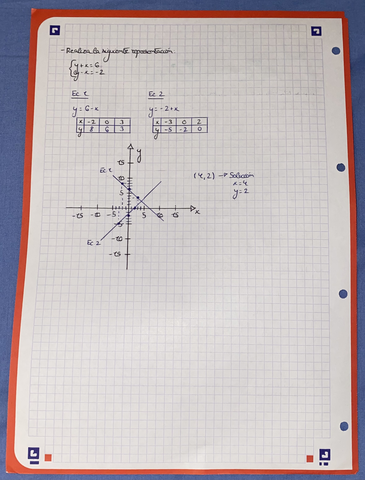 - Realiza la siguiente representación.
{ y + x = 6
y - x = -2
Ec 1
Ec 2
y = 6 - x
y = -2 + x
x | -2 | 0 | 3
y | 8 | 6 | 3
x | -3 | 0 | 2
y | -5 | -2 | 0
y
15
10
5
-15 -10 -5 5 10 15 x
-5
-10
-15
Ec 1
Ec 2
(4, 2) → Solución
x = 4
y = 2